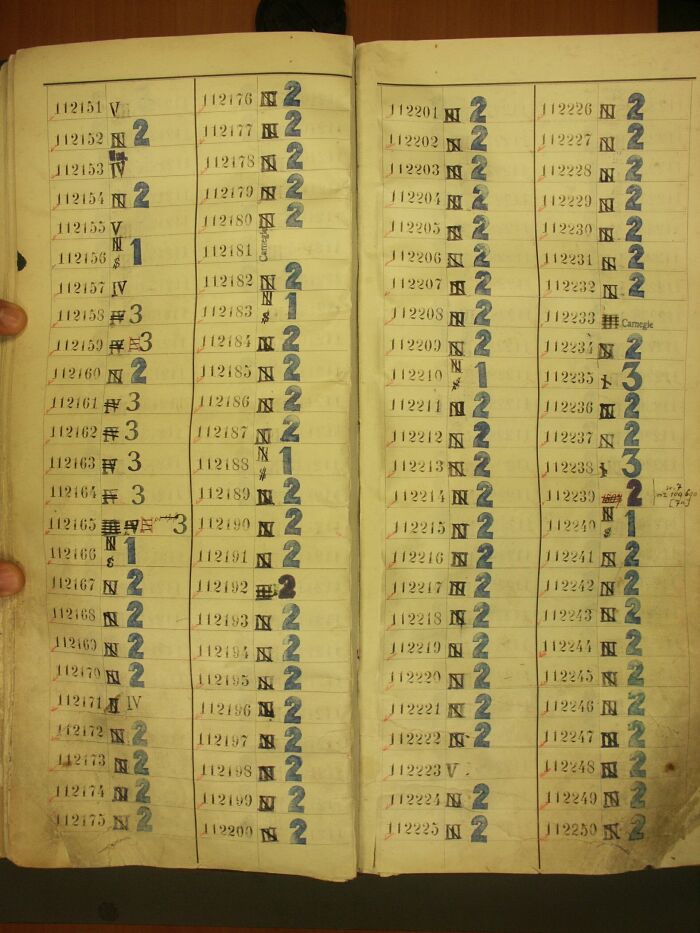 112151 V
112152 N 2
112153 IV
112154 N 2
112155 V
112156 N $ 1
112157 IV
112158 IV 3
112159 IV 3
112160 N 2
112161 IV 3
112162 IV 3
112163 IV 3
112164 IV 3
112165 IV 3
112166 N $ 1
112167 N 2
112168 N 2
112169 N 2
112170 N 2
112171 N IV
112172 N 2
112173 N 2
112174 N 2
112175 N 2
112176 N 2
112177 N 2
112178 N 2
112179 N 2
112180 N 2
112181 Carnegie
112182 N 2
112183 N $ 1
112184 N 2
112185 N 2
112186 N 2
112187 N 2
112188 N $ 1
112189 N 2
112190 N 2
112191 N 2
112192 2
112193 N 2
112194 N 2
112195 N 2
112196 N 2
112197 N 2
112198 N 2
112199 N 2
112200 N 2
112201 N 2
112202 N 2
112203 N 2
112204 N 2
112205 N 2
112206 N 2
112207 N 2
112208 N 2
112209 N 2
112210 N $ 1
112211 N 2
112212 N 2
112213 N 2
112214 N 2
112215 N 2
112216 N 2
112217 N 2
112218 N 2
112219 N 2
112220 N 2
112221 N 2
112222 N 2
112223 V
112224 N 2
112225 N 2
112226 N 2
112227 N 2
112228 N 2
112229 N 2
112230 N 2
112231 N 2
112232 N 2
112233 Carnegie
112234 N 2
112235 3
112236 N 2
112237 N 2
112238 3
112239 2
112240 N $ 1
112241 N 2
112242 N 2
112243 N 2
112244 N 2
112245 N 2
112246 N 2
112247 N 2
112248 N 2
112249 N 2
112250 N 2